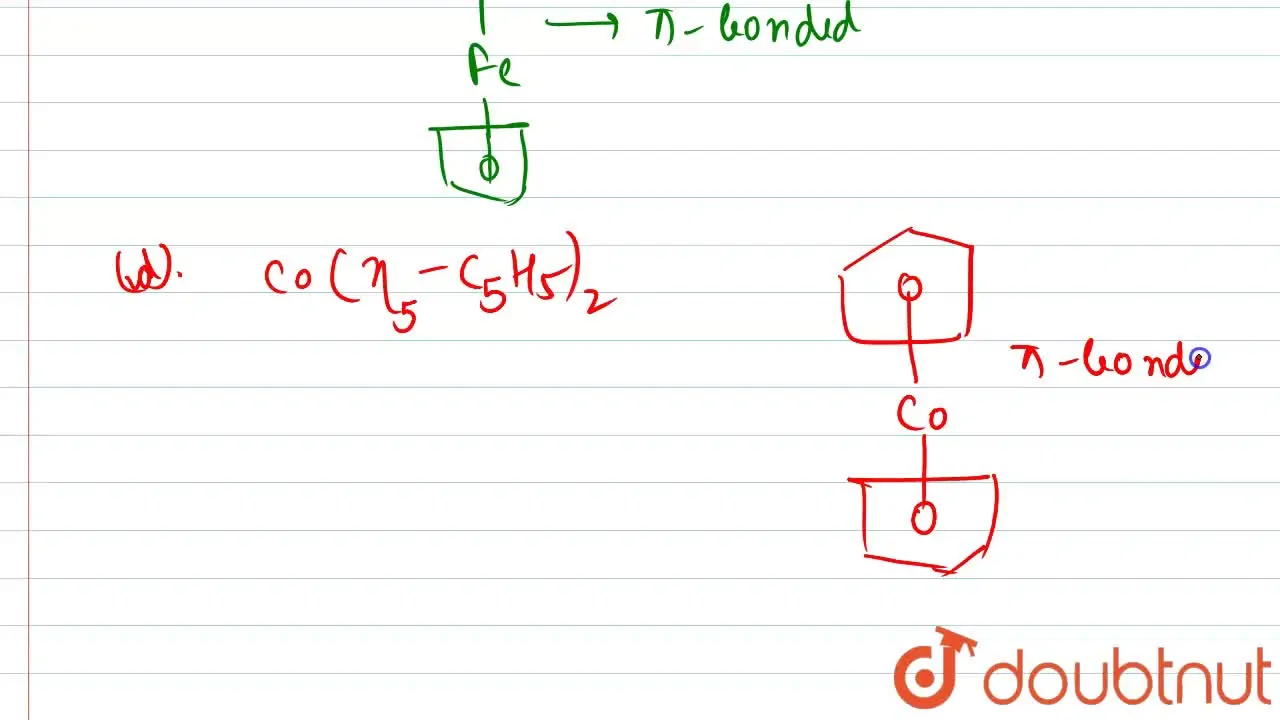 ⟶ π-bonded
Fe
(d). Co(η5-C5H5)2
π-bonde
Co
doubtnut